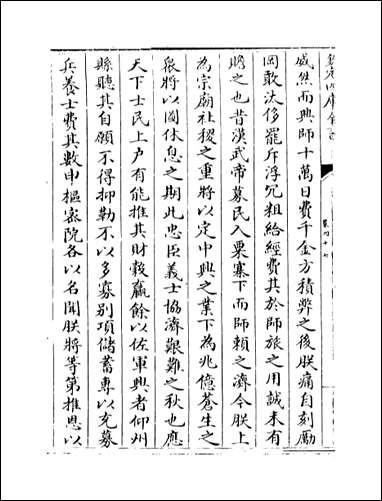 欽定四庫全書
盛然而興師十萬日費千金方積弊之後朕痛自刻勵
罔敢汰侈罷斥浮冗粗給經費其於師旅之用誠未有
贍之也昔漢武帝募民入粟塞下而師賴之濟今朕上
為宗廟社稷之重將以定中興之業下為兆億蒼生之
衆將以圖休息之期此忠臣義士協濟艱難之秋也應
天下士民上户有能推其財榖贏餘以佐軍興者仰州
縣聽其自願不得抑勒不以多寡别項儲蓄專以充募
兵養士費其數申樞宻院各以名聞朕將等第推恩以